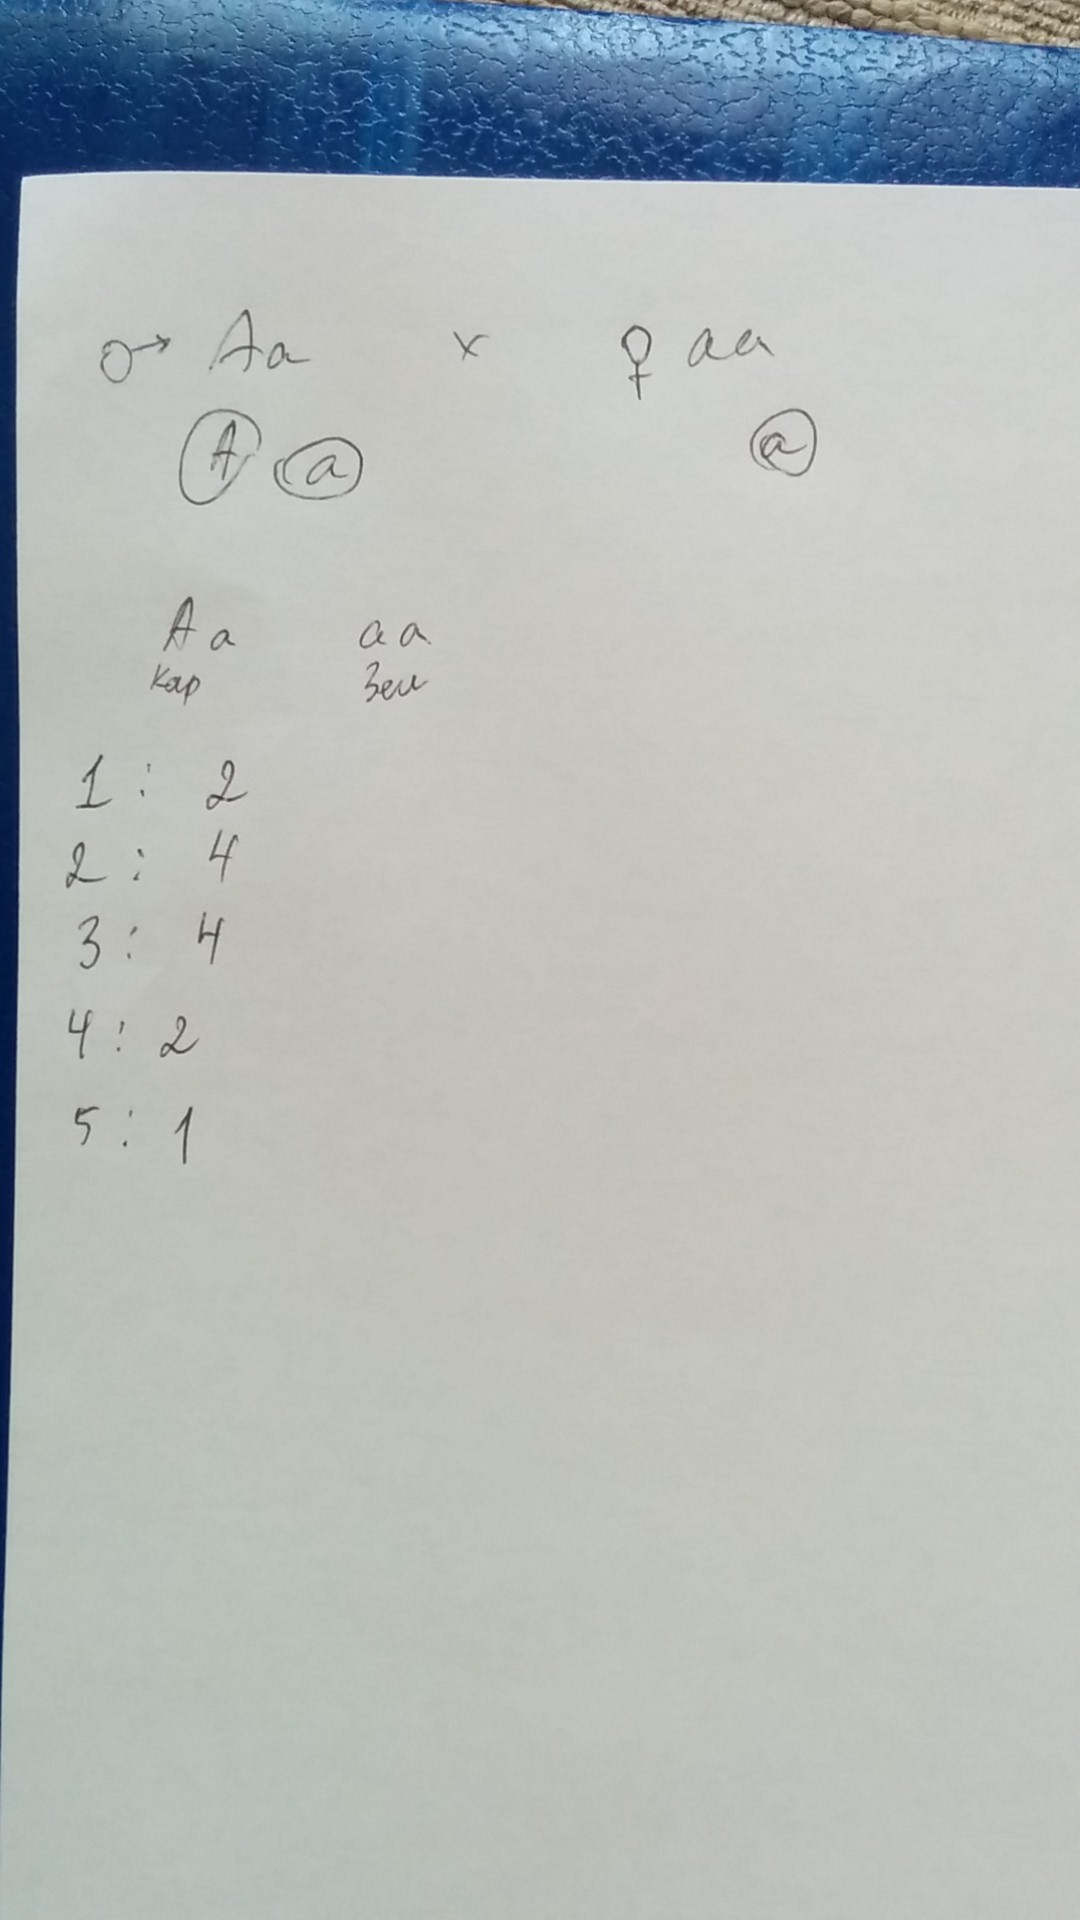 ♂ Aa x ♀ aa
A a a
Aa aa
Кар Зел
1 : 2
2 : 4
3 : 4
4 : 2
5 : 1